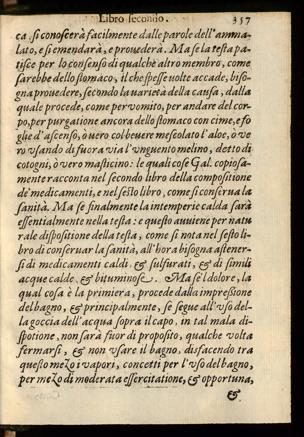 Libro secondo. 357
ca. si conoscerà facilmente dalle parole dell'amma-
lato, e si emendarà, e prouederà. Ma se la testa pa-
tisce per lo consenso di qualche altro membro, come
sarebbe dello stomaco, il che spesse uolte accade, biso-
gna prouedere, secondo la uarietà della causa, dalla
quale procede, come per vomito, per andare del cor-
po, per purgatione ancora dello stomaco con cime, e fo
glie d'ascenso, ò uero col beuere mescolato l'aloe, ò ve
ro vsando di fuora via l'vnguento melino, detto di
cotogni, ò vero masticino: le quali cose Gal. copiosa-
mente racconta nel secondo libro della compositione
de' medicamenti, e nel sesto libro, come si conserua la
sanità. Ma se finalmente la intemperie calda sarà
essentialmente nella testa: e questo auuiene per natu
rale dispositione della testa, come si nota nel sesto li-
bro di conseruar la sanità, all'hora bisogna astener-
si di medicamenti caldi, & sulfurati, & di simili
acque calde, & bituminose. Ma se'l dolore, la
qual cosa è la primiera, procede dalla impressione
del bagno, & principalmente, se segue all'vso del-
la goccia dell'acqua sopra il capo, in tal mala di-
spotione, non sarà fuor di proposito, qualche volta
fermarsi, & non vsare il bagno, disfacendo tra
questo mezo i vapori, concetti per l'vso del bagno,
per mezo di moderata essercitatione, & opportuna,
&